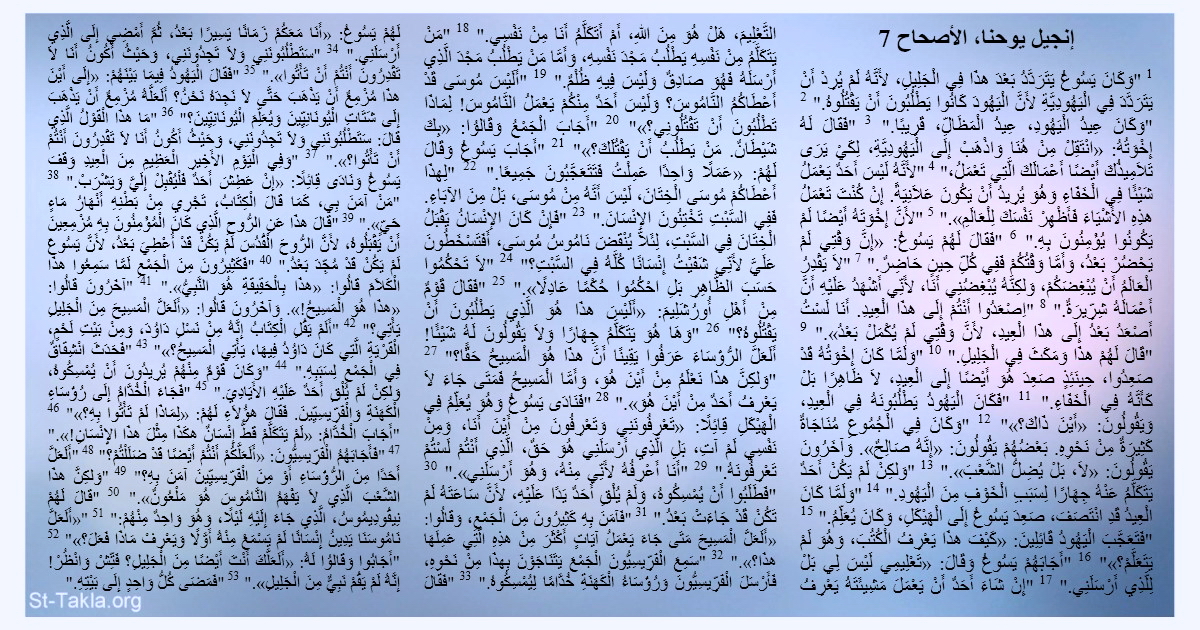 إنجيل يوحنا، الأصحاح 7
1 "وَكَانَ يَسُوعُ يَتَرَدَّدُ بَعْدَ هذَا فِي الْجَلِيلِ، لأَنَّهُ لَمْ يُرِدْ أَنْ
يَتَرَدَّدَ فِي الْيَهُودِيَّةِ لأَنَّ الْيَهُودَ كَانُوا يَطْلُبُونَ أَنْ يَقْتُلُوهُ." 2
"وَكَانَ عِيدُ الْيَهُودِ، عِيدُ الْمَظَالِّ، قَرِيبًا." 3 "فَقَالَ لَهُ
إِخْوَتُهُ: «انْتَقِلْ مِنْ هُنَا وَاذْهَبْ إِلَى الْيَهُودِيَّةِ، لِكَيْ يَرَى
تَلاَمِيذُكَ أَيْضًا أَعْمَالَكَ الَّتِي تَعْمَلُ،" 4 "لأَنَّهُ لَيْسَ أَحَدٌ يَعْمَلُ
شَيْئًا فِي الْخَفَاءِ وَهُوَ يُرِيدُ أَنْ يَكُونَ عَلاَنِيَةً. إِنْ كُنْتَ تَعْمَلُ
هذِهِ الأَشْيَاءَ فَأَظْهِرْ نَفْسَكَ لِلْعَالَمِ»." 5 "لأَنَّ إِخْوَتَهُ أَيْضًا لَمْ
يَكُونُوا يُؤْمِنُونَ بِهِ." 6 "فَقَالَ لَهُمْ يَسُوعُ: «إِنَّ وَقْتِي لَمْ
يَحْضُرْ بَعْدُ، وَأَمَّا وَقْتُكُمْ فَفِي كُلِّ حِينٍ حَاضِرٌ." 7 "لاَ يَقْدِرُ
الْعَالَمُ أَنْ يُبْغِضَكُمْ، وَلكِنَّهُ يُبْغِضُنِي أَنَا، لأَنِّي أَشْهَدُ عَلَيْهِ أَنَّ
أَعْمَالَهُ شِرِّيرَةٌ." 8 "اِصْعَدُوا أَنْتُمْ إِلَى هذَا الْعِيدِ. أَنَا لَسْتُ
أَصْعَدُ بَعْدُ إِلَى هذَا الْعِيدِ، لأَنَّ وَقْتِي لَمْ يُكْمَلْ بَعْدُ»." 9
"قَالَ لَهُمْ هذَا وَمَكَثَ فِي الْجَلِيلِ." 10 "وَلَمَّا كَانَ إِخْوَتُهُ قَدْ
صَعِدُوا، حِينَئِذٍ صَعِدَ هُوَ أَيْضًا إِلَى الْعِيدِ، لاَ ظَاهِرًا بَلْ
كَأَنَّهُ فِي الْخَفَاءِ." 11 "فَكَانَ الْيَهُودُ يَطْلُبُونَهُ فِي الْعِيدِ،
وَيَقُولُونَ: «أَيْنَ ذَاكَ؟»" 12 "وَكَانَ فِي الْجُمُوعِ مُنَاجَاةٌ
كَثِيرَةٌ مِنْ نَحْوِهِ. بَعْضُهُمْ يَقُولُونَ: «إِنَّهُ صَالِحٌ». وَآخَرُونَ
يَقُولُونَ: «لاَ، بَلْ يُضِلُّ الشَّعْبَ»." 13 "وَلكِنْ لَمْ يَكُنْ أَحَدٌ
يَتَكَلَّمُ عَنْهُ جِهَارًا لِسَبَبِ الْخَوْفِ مِنَ الْيَهُودِ." 14 "وَلَمَّا كَانَ
الْعِيدُ قَدِ انْتَصَفَ، صَعِدَ يَسُوعُ إِلَى الْهَيْكَلِ، وَكَانَ يُعَلِّمُ." 15
"فَتَعَجَّبَ الْيَهُودُ قَائِلِينَ: «كَيْفَ هذَا يَعْرِفُ الْكُتُبَ، وَهُوَ لَمْ
يَتَعَلَّمْ؟»" 16 "أَجَابَهُمْ يَسُوعُ وَقَالَ: «تَعْلِيمِي لَيْسَ لِي بَلْ
لِلَّذِي أَرْسَلَنِي." 17 "إِنْ شَاءَ أَحَدٌ أَنْ يَعْمَلَ مَشِيئَتَهُ يَعْرِفُ
التَّعْلِيمَ، هَلْ هُوَ مِنَ اللهِ، أَمْ أَتَكَلَّمُ أَنَا مِنْ نَفْسِي." 18 "مَنْ
يَتَكَلَّمُ مِنْ نَفْسِهِ يَطْلُبُ مَجْدَ نَفْسِهِ، وَأَمَّا مَنْ يَطْلُبُ مَجْدَ الَّذِي
أَرْسَلَهُ فَهُوَ صَادِقٌ وَلَيْسَ فِيهِ ظُلْمٌ." 19 "أَلَيْسَ مُوسَى قَدْ
أَعْطَاكُمُ النَّامُوسَ؟ وَلَيْسَ أَحَدٌ مِنْكُمْ يَعْمَلُ النَّامُوسَ! لِمَاذَا
تَطْلُبُونَ أَنْ تَقْتُلُونِي؟»" 20 "أَجَابَ الْجَمْعُ وَقَالُوا: «بِكَ
شَيْطَانٌ. مَنْ يَطْلُبُ أَنْ يَقْتُلَكَ؟»" 21 "أَجَابَ يَسُوعُ وَقَالَ
لَهُمْ: «عَمَلًا وَاحِدًا عَمِلْتُ فَتَتَعَجَّبُونَ جَمِيعًا." 22 "لِهذَا
أَعْطَاكُمْ مُوسَى الْخِتَانَ، لَيْسَ أَنَّهُ مِنْ مُوسَى، بَلْ مِنَ الآبَاءِ.
فَفِي السَّبْتِ تَخْتِنُونَ الإِنْسَانَ." 23 "فَإِنْ كَانَ الإِنْسَانُ يَقْبَلُ
الْخِتَانَ فِي السَّبْتِ، لِئَلاَّ يُنْقَضَ نَامُوسُ مُوسَى، أَفَتَسْخَطُونَ
عَلَيَّ لأَنِّي شَفَيْتُ إِنْسَانًا كُلَّهُ فِي السَّبْتِ؟" 24 "لاَ تَحْكُمُوا
حَسَبَ الظَّاهِرِ بَلِ احْكُمُوا حُكْمًا عَادِلًا»." 25 "فَقَالَ قَوْمٌ
مِنْ أَهْلِ أُورُشَلِيمَ: «أَلَيْسَ هذَا هُوَ الَّذِي يَطْلُبُونَ أَنْ
يَقْتُلُوهُ؟" 26 "وَهَا هُوَ يَتَكَلَّمُ جِهَارًا وَلاَ يَقُولُونَ لَهُ شَيْئًا!
أَلَعَلَّ الرُّؤَسَاءَ عَرَفُوا يَقِينًا أَنَّ هذَا هُوَ الْمَسِيحُ حَقًّا؟" 27
"وَلكِنَّ هذَا نَعْلَمُ مِنْ أَيْنَ هُوَ، وَأَمَّا الْمَسِيحُ فَمَتَى جَاءَ لاَ
يَعْرِفُ أَحَدٌ مِنْ أَيْنَ هُوَ»." 28 "فَنَادَى يَسُوعُ وَهُوَ يُعَلِّمُ فِي
الْهَيْكَلِ قِائِلًا: «تَعْرِفُونَنِي وَتَعْرِفُونَ مِنْ أَيْنَ أَنَا، وَمِنْ
نَفْسِي لَمْ آتِ، بَلِ الَّذِي أَرْسَلَنِي هُوَ حَقٌ، الَّذِي أَنْتُمْ لَسْتُمْ
تَعْرِفُونَهُ." 29 "أَنَا أَعْرِفُهُ لأَنِّي مِنْهُ، وَهُوَ أَرْسَلَنِي»." 30
"فَطَلَبُوا أَنْ يُمْسِكُوهُ، وَلَمْ يُلْقِ أَحَدٌ يَدًا عَلَيْهِ، لأَنَّ سَاعَتَهُ لَمْ
تَكُنْ قَدْ جَاءَتْ بَعْدُ." 31 "فَآمَنَ بِهِ كَثِيرُونَ مِنَ الْجَمْعِ، وَقَالُوا:
«أَلَعَلَّ الْمَسِيحَ مَتَى جَاءَ يَعْمَلُ آيَاتٍ أَكْثَرَ مِنْ هذِهِ الَّتِي عَمِلَهَا
هذَا؟»." 32 "سَمِعَ الْفَرِّيسِيُّونَ الْجَمْعَ يَتَنَاجَوْنَ بِهذَا مِنْ نَحْوِهِ،
فَأَرْسَلَ الْفَرِّيسِيُّونَ وَرُؤَسَاءُ الْكَهَنَةِ خُدَّامًا لِيُمْسِكُوهُ." 33 "فَقَالَ
لَهُمْ يَسُوعُ: «أَنَا مَعَكُمْ زَمَانًا يَسِيرًا بَعْدُ، ثُمَّ أَمْضِي إِلَى الَّذِي
أَرْسَلَنِي." 34 "سَتَطْلُبُونَنِي وَلاَ تَجِدُونَنِي، وَحَيْثُ أَكُونُ أَنَا لاَ
تَقْدِرُونَ أَنْتُمْ أَنْ تَأْتُوا»." 35 "فَقَالَ الْيَهُودُ فِيمَا بَيْنَهُمْ: «إِلَى أَيْنَ
هذَا مُزْمِعٌ أَنْ يَذْهَبَ حَتَّى لاَ نَجِدَهُ نَحْنُ؟ أَلَعَلَّهُ مُزْمِعٌ أَنْ يَذْهَبَ
إِلَى شَتَاتِ الْيُونَانِيِّينَ وَيُعَلِّمَ الْيُونَانِيِّينَ؟" 36 "مَا هذَا الْقَوْلُ الَّذِي
قَالَ: سَتَطْلُبُونَنِي وَلاَ تَجِدُونَنِي، وَحَيْثُ أَكُونُ أَنَا لاَ تَقْدِرُونَ أَنْتُمْ
أَنْ تَأْتُوا؟»." 37 "وَفِي الْيَوْمِ الأَخِيرِ الْعَظِيمِ مِنَ الْعِيدِ وَقَفَ
يَسُوعُ وَنَادَى قِائِلًا: «إِنْ عَطِشَ أَحَدٌ فَلْيُقْبِلْ إِلَيَّ وَيَشْرَبْ." 38
"مَنْ آمَنَ بِي، كَمَا قَالَ الْكِتَابُ، تَجْرِي مِنْ بَطْنِهِ أَنْهَارُ مَاءٍ
حَيٍّ»." 39 "قَالَ هذَا عَنِ الرُّوحِ الَّذِي كَانَ الْمُؤْمِنُونَ بِهِ مُزْمِعِينَ
أَنْ يَقْبَلُوهُ، لأَنَّ الرُّوحَ الْقُدُسَ لَمْ يَكُنْ قَدْ أُعْطِيَ بَعْدُ، لأَنَّ يَسُوعَ
لَمْ يَكُنْ قَدْ مُجِّدَ بَعْدُ." 40 "فَكَثِيرُونَ مِنَ الْجَمْعِ لَمَّا سَمِعُوا هذَا
الْكَلاَمَ قَالُوا: «هذَا بِالْحَقِيقَةِ هُوَ النَّبِيُّ»." 41 "آخَرُونَ قَالُوا:
«هذَا هُوَ الْمَسِيحُ!». وَآخَرُونَ قَالُوا: «أَلَعَلَّ الْمَسِيحَ مِنَ الْجَلِيلِ
يَأْتِي؟" 42 "أَلَمْ يَقُلِ الْكِتَابُ إِنَّهُ مِنْ نَسْلِ دَاوُدَ، وَمِنْ بَيْتِ لَحْمٍ،
الْقَرْيَةِ الَّتِي كَانَ دَاوُدُ فِيهَا، يَأْتِي الْمَسِيحُ؟»" 43 "فَحَدَثَ انْشِقَاقٌ
فِي الْجَمْعِ لِسَبَبِهِ." 44 "وَكَانَ قَوْمٌ مِنْهُمْ يُرِيدُونَ أَنْ يُمْسِكُوهُ،
وَلكِنْ لَمْ يُلْقِ أَحَدٌ عَلَيْهِ الأَيَادِيَ." 45 "فَجَاءَ الْخُدَّامُ إِلَى رُؤَسَاءِ
الْكَهَنَةِ وَالْفَرِّيسِيِّينَ. فَقَالَ هؤُلاَءِ لَهُمْ: «لِمَاذَا لَمْ تَأْتُوا بِهِ؟»" 46
"أَجَابَ الْخُدَّامُ: «لَمْ يَتَكَلَّمْ قَطُّ إِنْسَانٌ هكَذَا مِثْلَ هذَا الإِنْسَانِ!»."
47 "فَأَجَابَهُمُ الْفَرِّيسِيُّونَ: «أَلَعَلَّكُمْ أَنْتُمْ أَيْضًا قَدْ ضَلَلْتُمْ؟" 48 "أَلَعَلَّ
أَحَدًا مِنَ الرُّؤَسَاءِ أَوْ مِنَ الْفَرِّيسِيِّينَ آمَنَ بِهِ؟" 49 "وَلكِنَّ هذَا
الشَّعْبَ الَّذِي لاَ يَفْهَمُ النَّامُوسَ هُوَ مَلْعُونٌ»." 50 "قَالَ لَهُمْ
نِيقُودِيمُوسُ، الَّذِي جَاءَ إِلَيْهِ لَيْلًا، وَهُوَ وَاحِدٌ مِنْهُمْ:" 51 "«أَلَعَلَّ
نَامُوسَنَا يَدِينُ إِنْسَانًا لَمْ يَسْمَعْ مِنْهُ أَوَّلًا وَيَعْرِفْ مَاذَا فَعَلَ؟»" 52
"أَجَابُوا وَقَالُوا لَهُ: «أَلَعَلَّكَ أَنْتَ أَيْضًا مِنَ الْجَلِيلِ؟ فَتِّشْ وَانْظُرْ!
إِنَّهُ لَمْ يَقُمْ نَبِيٌّ مِنَ الْجَلِيلِ»." 53 "فَمَضَى كُلُّ وَاحِدٍ إِلَى بَيْتِهِ."
St-Takla.org